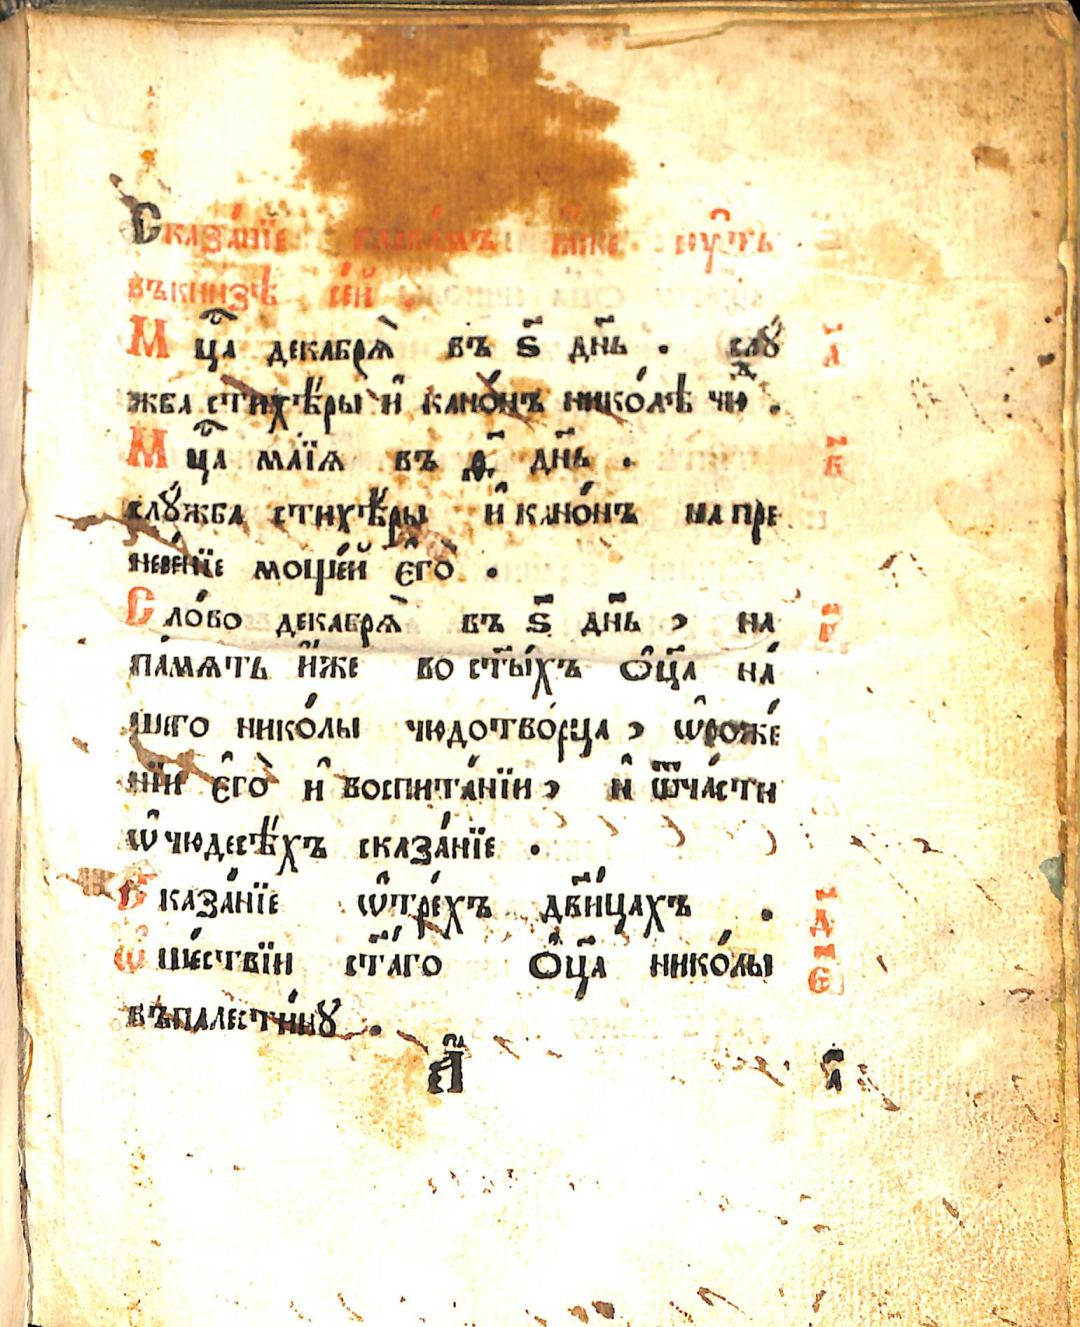 Сказа́нїе глава́мъ ꙗ҆́же сꙋ́ть
въкни́зѣ се́й
Мцⷭ҇а декабрѧ̀ въ ѕ҃ дн҃ь . слꙋ́ а҃
жба стихѣ́ры и҆ кано́нъ нико́лѣ чюⷣ .
Мцⷭ҇а ма́їꙗ въ ѳ҃ дн҃ь . в҃
слꙋ́жба стихѣ́ры и҆ кано́нъ на пре
несе́нїе моще́й є҆гѡ̀ .
Сло́во декабрѧ̀ въ ѕ҃ дн҃ь , на г҃
па́мѧть и҆́же во ст҃ы́хъ ѻ҆ц҃а на́
шего нико́лы чюдотво́рца , ѡ҆роже́
нїи є҆го̀ и҆ воспита́нїи , и҆ ѿча́сти
ѡ҆чюдесѣ́хъ сказа́нїе .
Сказа́нїе ѡ҆тре́хъ дв҃и́цахъ . д҃
Ѡ҆ше́ствїи ст҃а́го ѻ҆ц҃а нико́лы є҃
въпалести́нꙋ .
сл҃ а҃